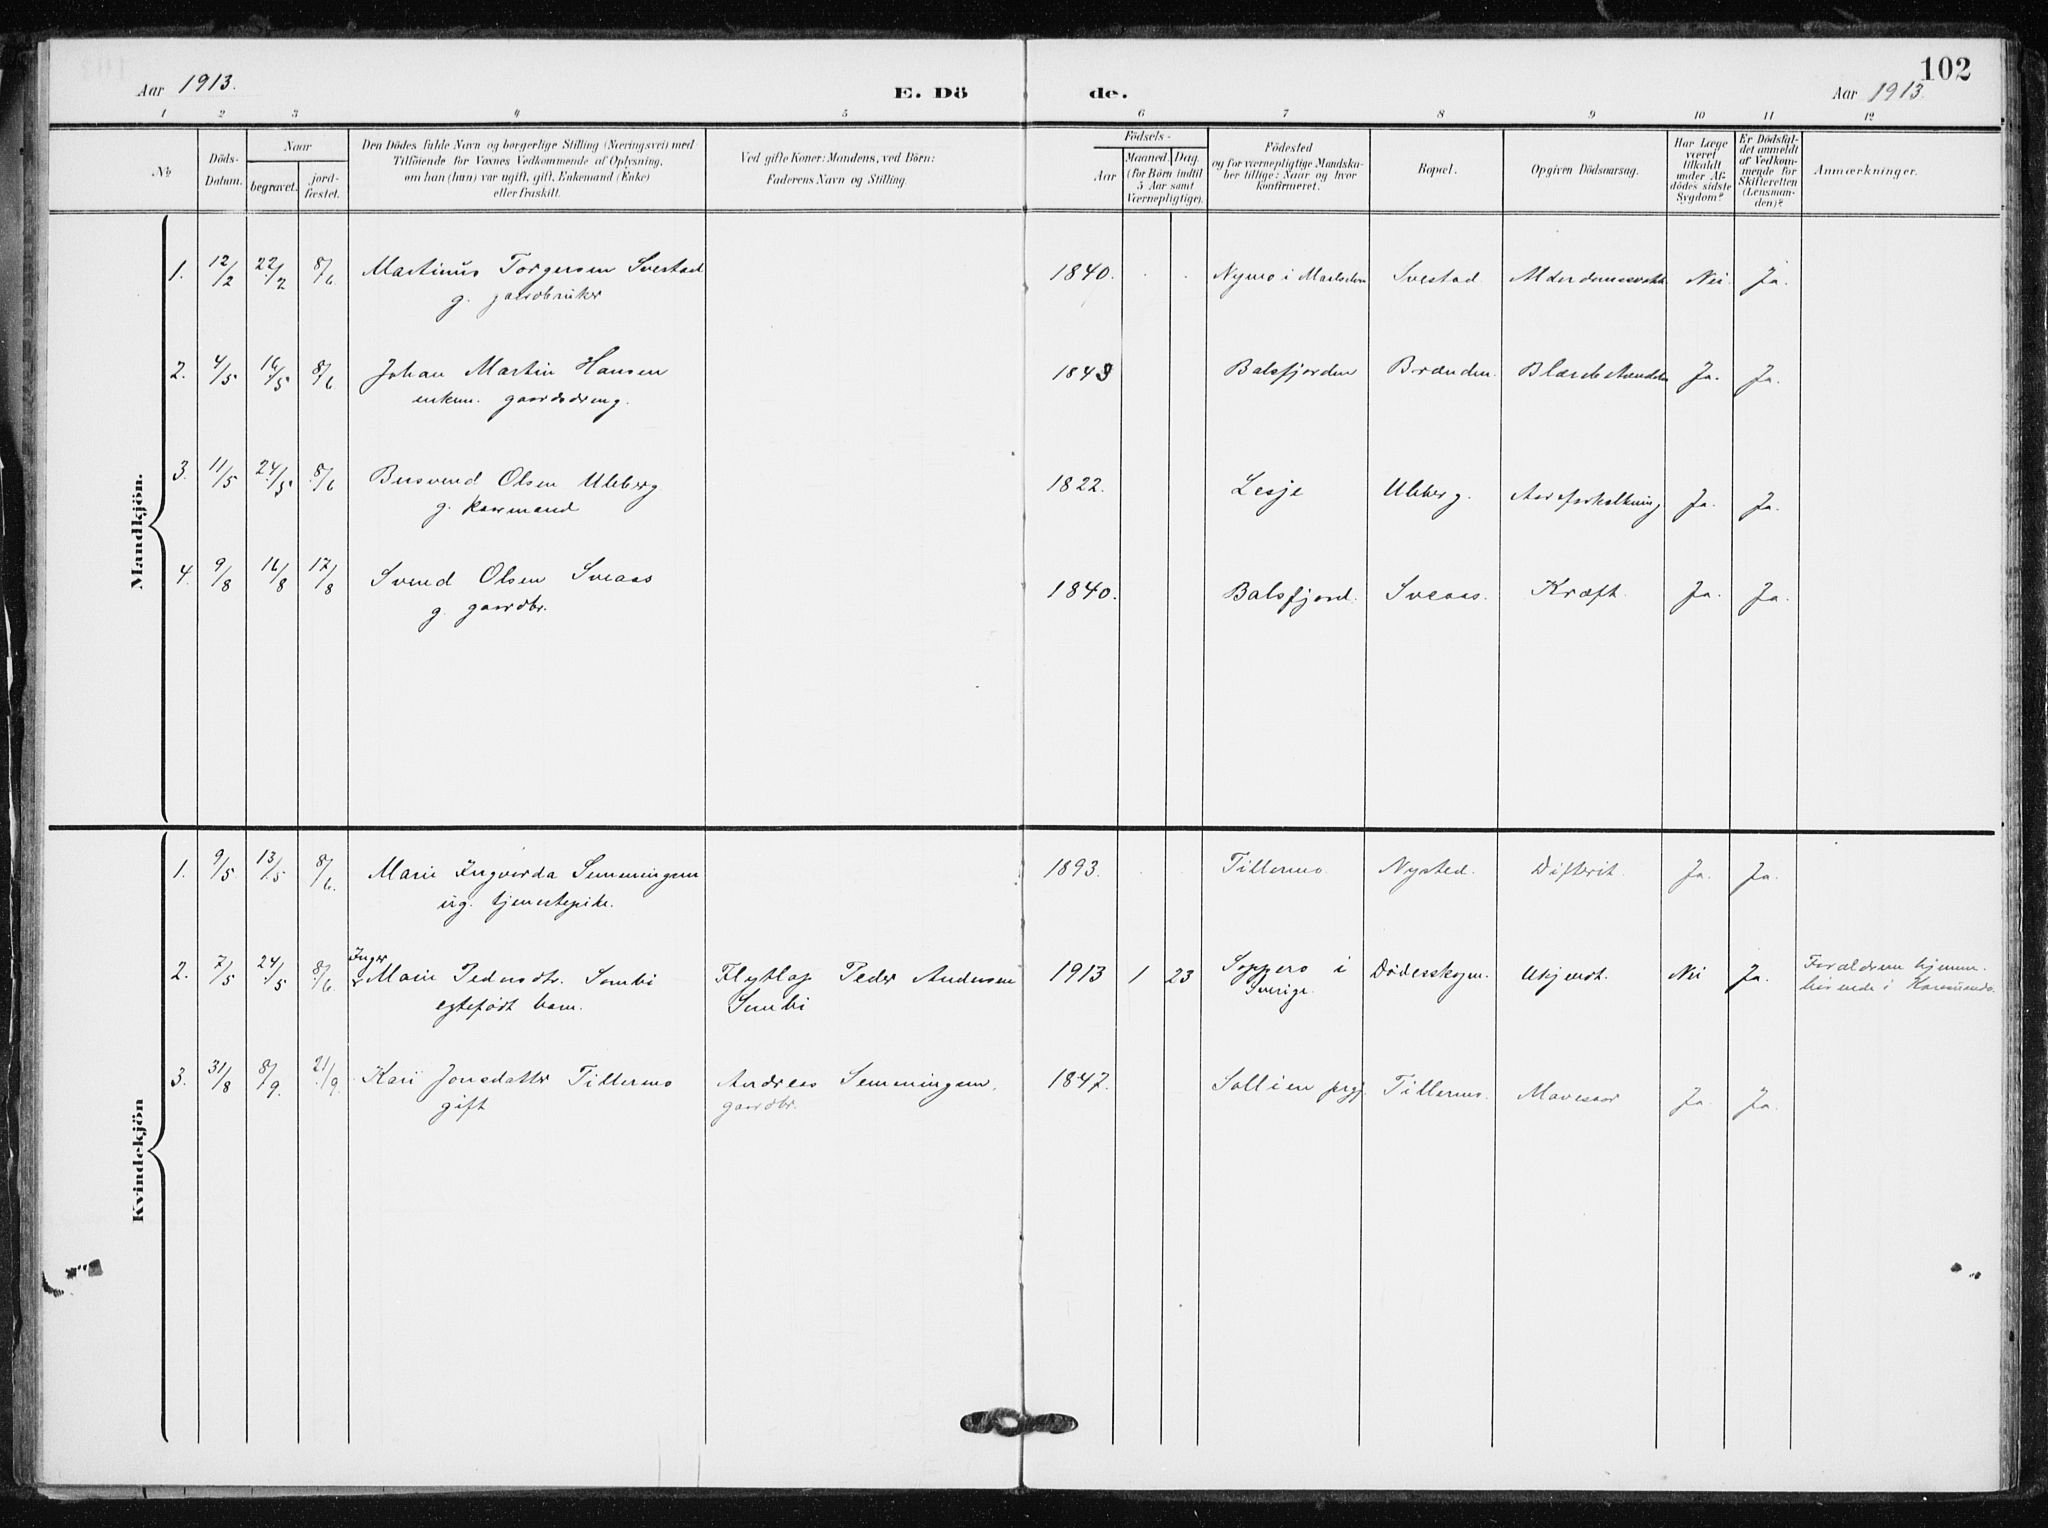 102
Aar 1913.
E. Dö
de.
Aar 1913
1 2 3 4 5 6 7 8 9 10 11 12
№
Döds-
Datum.
Naar
begravet.
jord-
fæstet.
Den Dödes fulde Navn og borgerlige Stilling (Næringsvei) med
Tilföiende for Voxnes Vedkommende af Oplysning,
om han (hun) var ugift, gift, Enkemand (Enke)
eller fraskilt.
Ved gifte Koner: Mandens, ved Börn:
Faderens Navn og Stilling.
Födsels-
Aar
Maaned. Dag.
(for Börn indtil
5 Aar samt
Værnepligtige).
Födested
og for værnepligtige Mandska-
ber tillige: Naar og hvor
konfirmeret.
Bopæl.
Opgiven Dödsaarsag.
Har Læge
været
tilkaldt
under Af-
dödes sidste
Sygdom?
Er Dödsfal-
det anmeldt
af Vedkom-
mende for
Skifteretten
(Lensman-
den)?
Anmærkninger.
Mandkjön.
1. 12/2 22/2 8/6 Martinus Torgersen Svestad 1840. Nymo i Maalselven Svestad Alderdomssvakh. Nei. Ja.
g. gaardbruker
2. 4/5 16/5 8/6 Johan Martin Hansen 1843 Balsfjorden Brænden. Blærebetændelse Ja. Ja.
enkem. gaardsdreng.
3. 11/5 24/5 8/6 Olsen Uleberg 1822. Lesje Uleberg. Aareforkalkning Ja. Ja.
g. kaarmand
4. 9/8 16/8 17/8 Svend Olsen Sveaas 1840. Balsfjord. Sveaas. Kræft. Ja. Ja.
g. gaardbr.
Kvindekjön
1. 9/5 13/5 8/6. Marie Ingvarda Semmingsen 1893. Tillermo. Nysted. Difterit. Ja. Ja.
ug. tjenestepike.
Inger
2. 7/5 24/5 8/6 Marie Pedersdtr. Sombi Flytlap Peder Andersen 1913 1 23 Soppero i Dödesskogen. Ukjendt. Nei Ja. Forældrene hjemme-
egtefödt barn. Sombi Sverige. hörende i Karesuando.
3. 31/8 8/9. 21/9. Kari Jonsdatter Tillermo Andreas Semmingsen, 1847. Sollien prgj. Tillermo. Mavesaar Ja. Ja.
gift gaardbr.